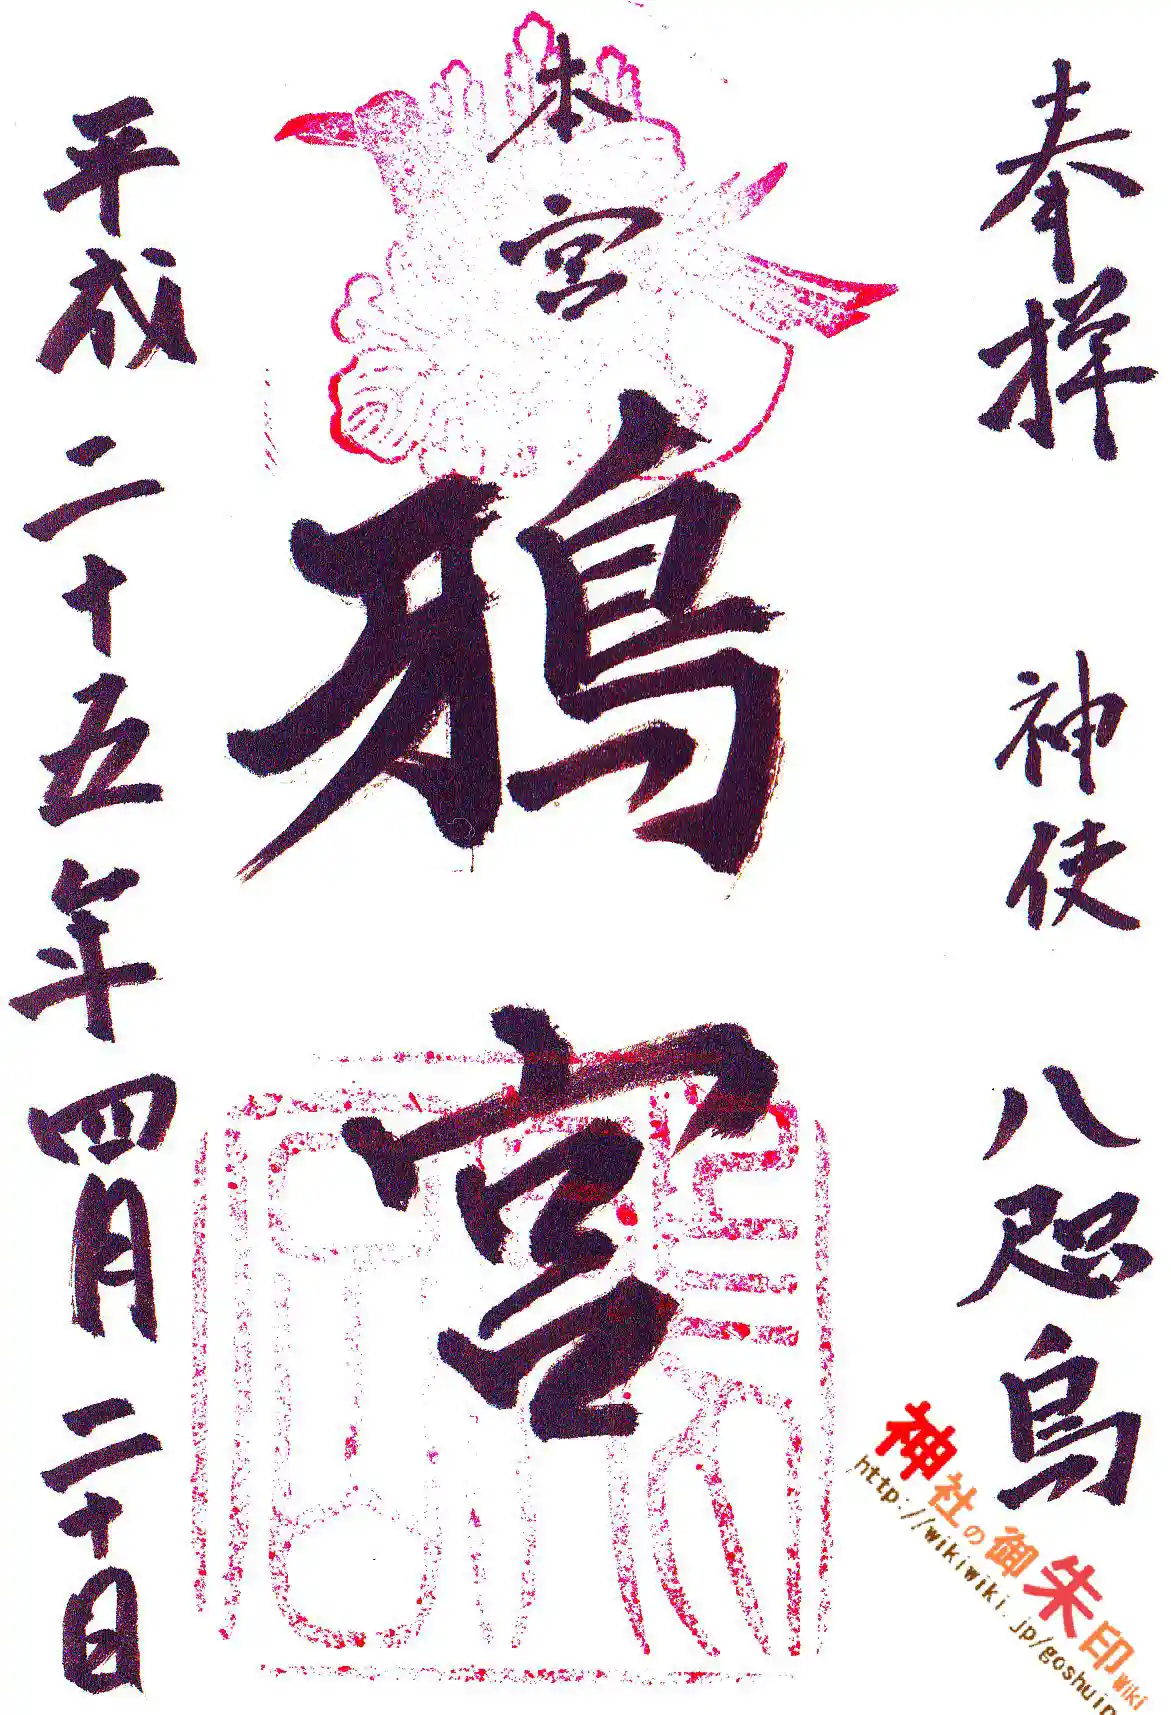 奉拝 神使 八咫烏
本宮
鴉宮
平成二十五年四月二十日
神社の御朱印Wiki
http://wikiwiki.jp/goshuin